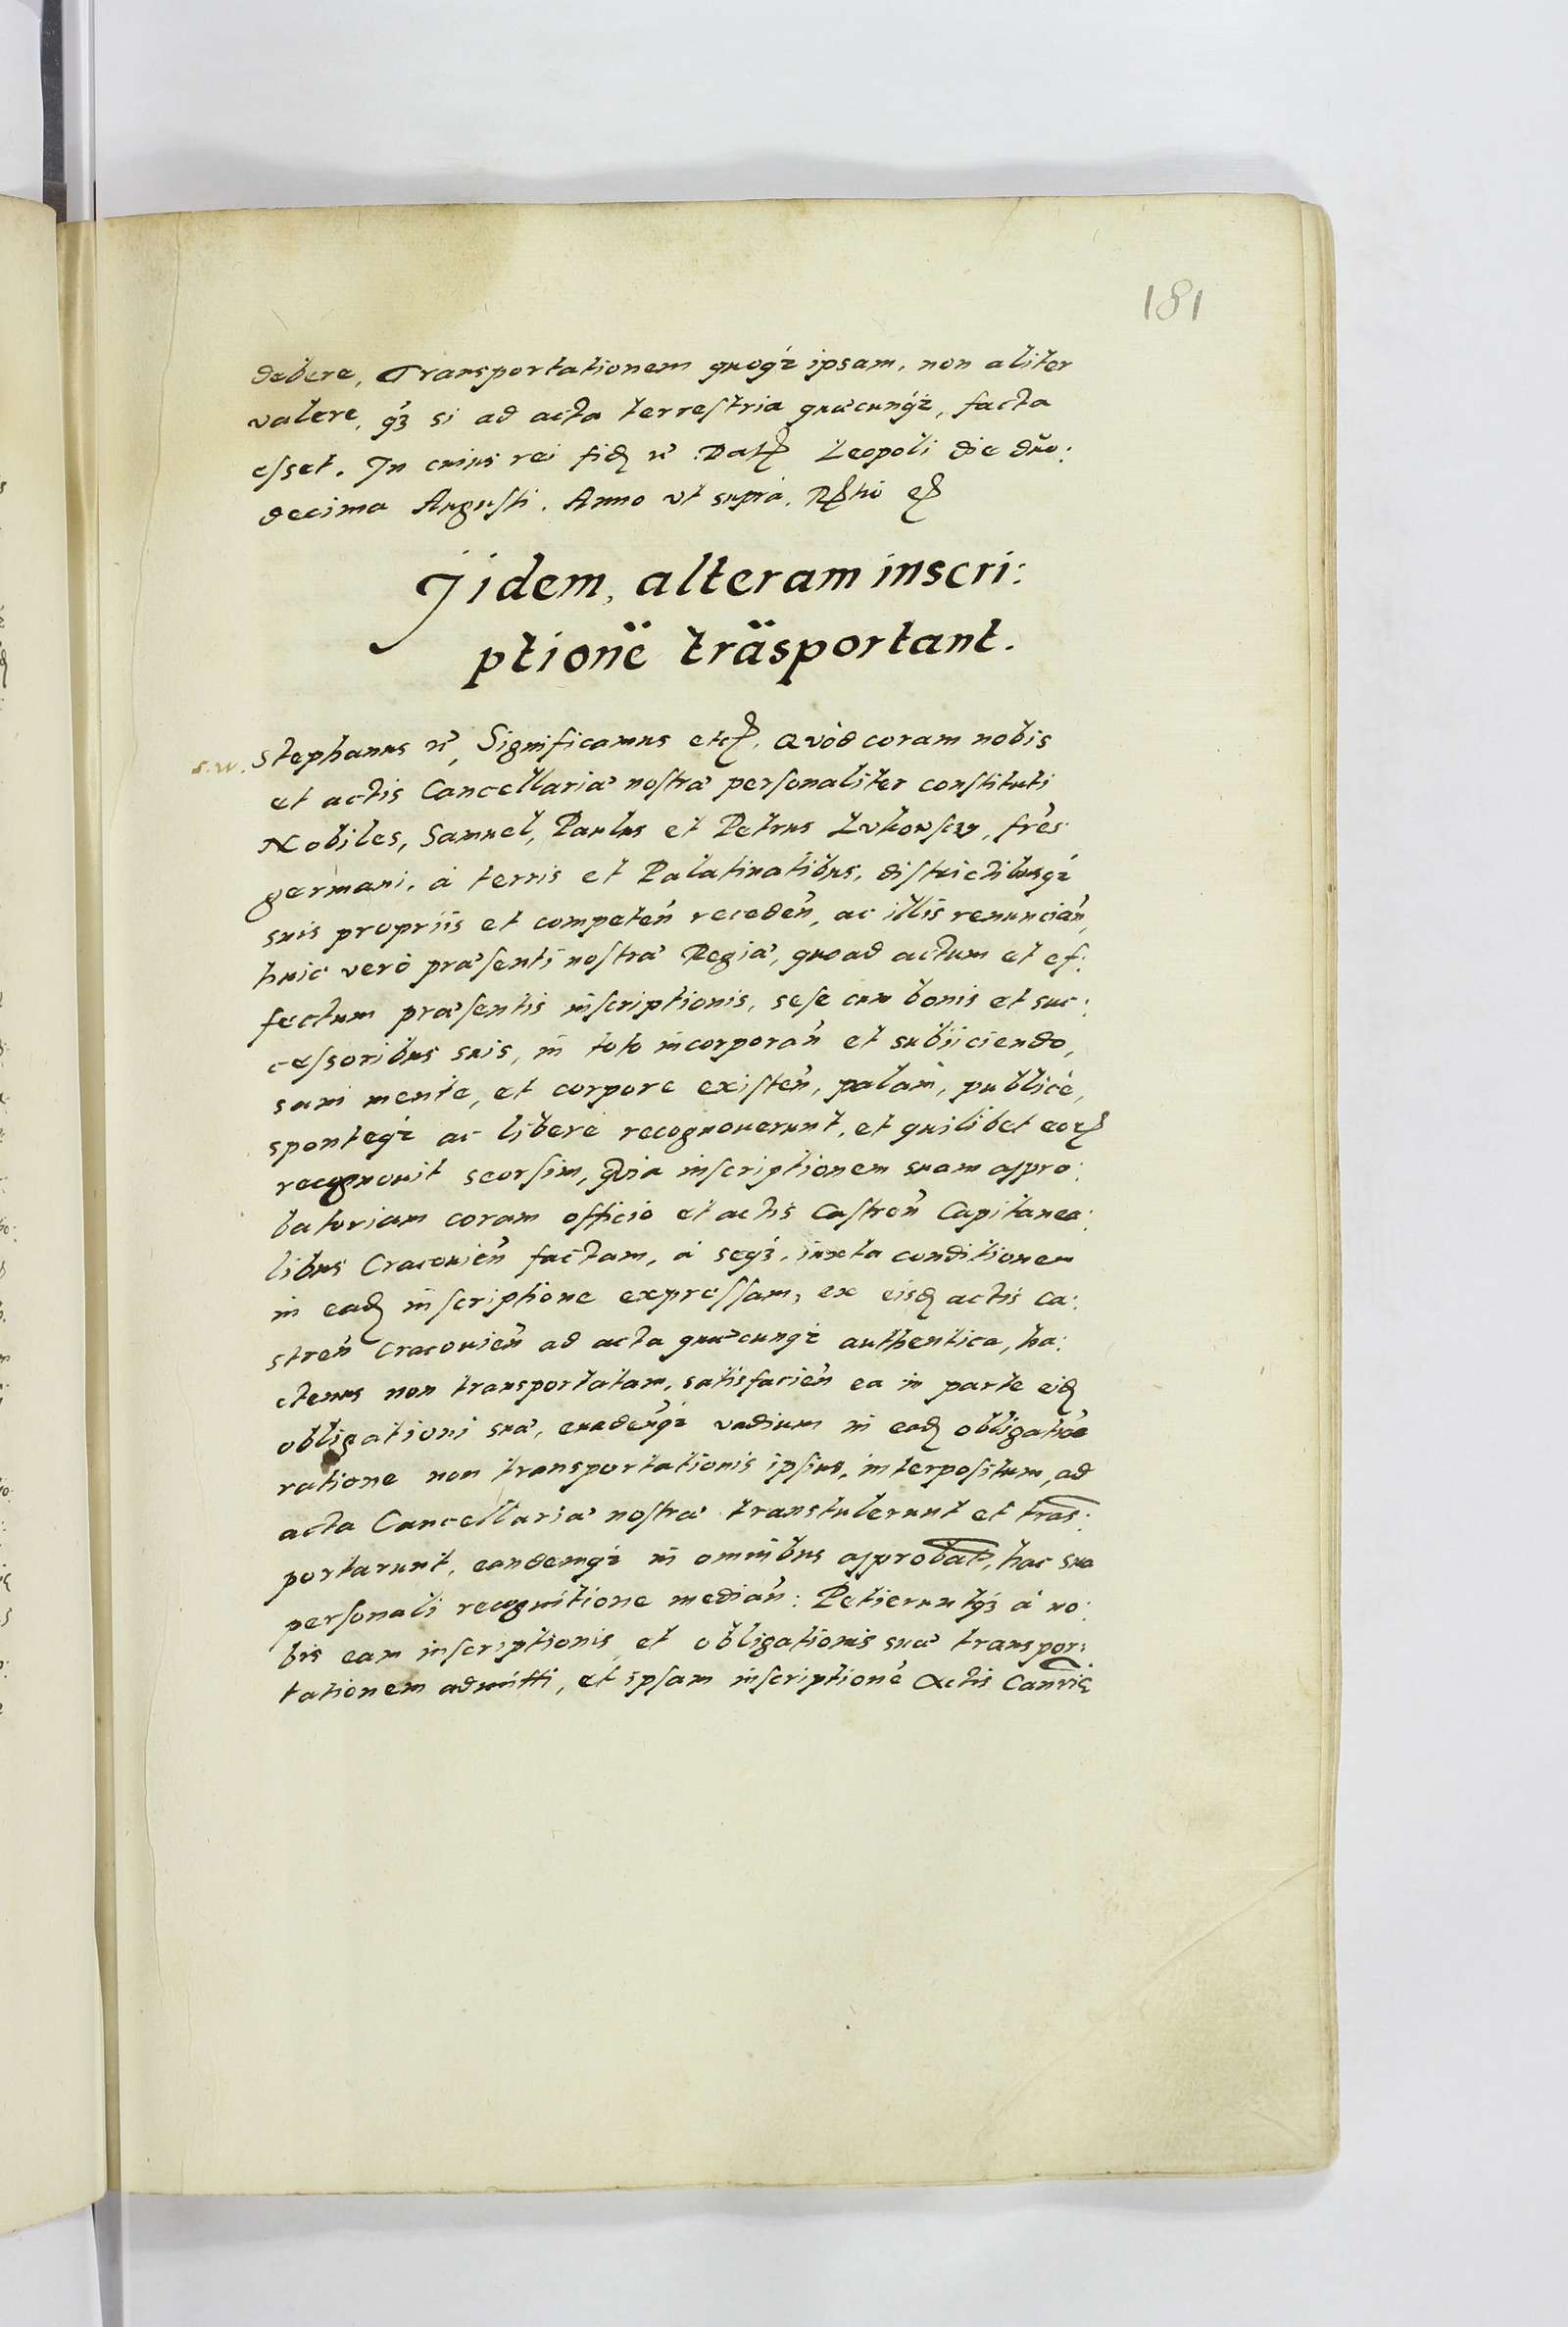 181
debere, Transportationem quoqꝫ ipsam, non aliter
valere, qꝫ si ad acta terrestria quæcunqꝫ, facta
esset. In cuius rei fidẽ etc. Datꝭ Leopoli die duo:
decima Augusti. Anno ut suprà.
Jidem, alteram inscri:
ptionẽ trãsportant.
S.W. Stephanus etc, Significamus etcꝭ. Quòd coram nobis
et actis Cancellariæ nostræ personaliter constituti
Nobiles, Samuel, Paulus et Petrus Lutowscy, frẽs
germani, à terris et Palatinatibus, districtibusqꝫ
suis propriis et competeñ recedeñ, ac illis renunciañ,
huic verò præsenti nostræ Regiæ, quoad actum et ef:
fectum præsentis inscriptionis, sese cum bonis et suc:
cessoribus suis, in toto incorporañ et subiiciendo,
sani mente, et corpore existeñ, palam, publicè,
sponteqꝫ ac liberè recognouerunt, et quilibet eorꝭ
recognouit seorsim, Quia inscriptionem suam appro:
batoriam coram officio et actis Castreñ Capitanea:
libus Cracouieñ factam, à seqꝫ, iuxta conditionem
in eadẽ inscriptione expressam, ex eisdẽ actis Ca:
streñ Cracouieñ ad acta quæcunqꝫ authentica, ha:
ctenus non transportatam, satisfacieñ ea in parte eidẽ
obligationi suæ, euadeñqꝫ vadium in eadẽ obligatiõe
ratione non transportationis ipsius, interpositum, ad
acta Cancellariæ nostræ transtulerunt et trãs:
portarunt, eandemqꝫ in omnibus approbãt, hac sua
personali recognitione mediañ: Petieruntqꝫ à no:
bis eam inscriptionis, et obligationis suæ transpor:
tationem admitti, et ipsam inscriptionẽ Actis Canriæ